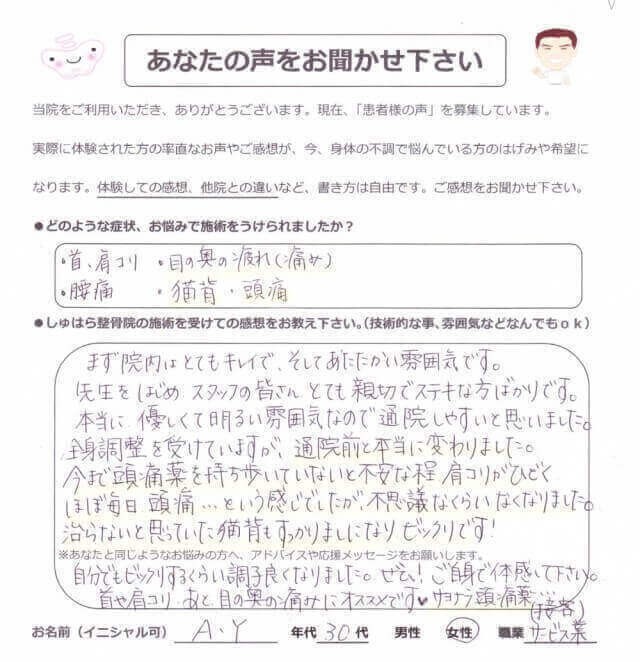 あなたの声をお聞かせ下さい
当院をご利用いただき、ありがとうございます。現在、「患者様の声」を募集しています。
実際に体験された方の率直なお声やご感想が、今、身体の不調で悩んでいる方のはげみや希望に
なります。体験しての感想、他院との違いなど、書き方は自由です。ご感想をお聞かせ下さい。
●どのような症状、お悩みで施術をうけられましたか？
・首、肩コリ ・目の奥の疲れ(痛み)
・腰痛 ・猫背・頭痛
●しゅはら整骨院の施術を受けての感想をお教え下さい。(技術的な事、雰囲気などなんでもok)
まず院内はとてもキレイで、そしてあたたかい雰囲気です。
先生をはじめ スタッフの皆さん とても 親切でステキな方ばかりです。
本当に 優しくて明るい雰囲気なので 通院しやすいと思いました。
全身調整を受けていますが、通院前と本当に変わりました。
今まで頭痛薬を持ち歩いていないと不安な程 肩コリがひどく
ほぼ毎日 頭痛…という感じでしたが、不思議なくらい なくなりました。
治らないと思っていた猫背もすっかりましになり ビックリです!
※あなたと同じようなお悩みの方へ、アドバイスや応援メッセージをお願いします。
自分でもビックリするくらい調子良くなりました。ぜひ! ご自身で体感して下さい。
首や肩コリ、あと、目の奥の痛みにオススメです♥サヨナラ頭痛薬…
お名前（イニシャル可） A・Y 年代 30 代 男性 女性 職業 (接客)サービス業